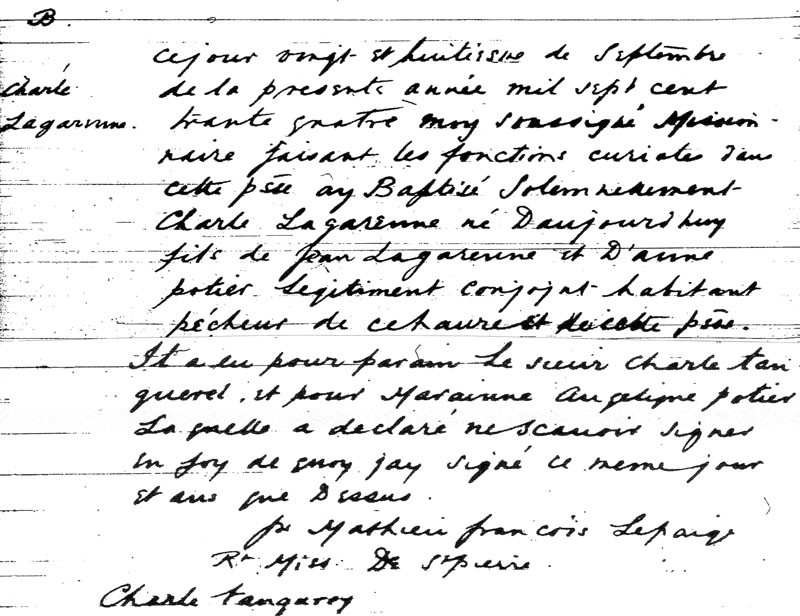 B.
Charle
Lagarenne.
cejour vingt et huitiesme de Septembre
de la presente année mil sept cent
trante quatre moy soussigné Mission-
naire faisant les fonctions curiales dans
cette psse ay Baptisé Solemnellement
Charle Lagarenne né Daujourdhuy
fils de Jean Lagarenne et D'anne
potier Legitiment conjoint habitant
pécheur de cehavre et de cette psse.
Il a eu pour parain Le sieur Charle tan
querel, et pour Marainne Angelique potier
Laquelle a declaré ne scavoir signer
En foy de quoy jay signé ce meme jour
et ans que Dessus.
fr Mathieu françois Lepaige
Rt Miss. De St pierre.
Charle tanquerey